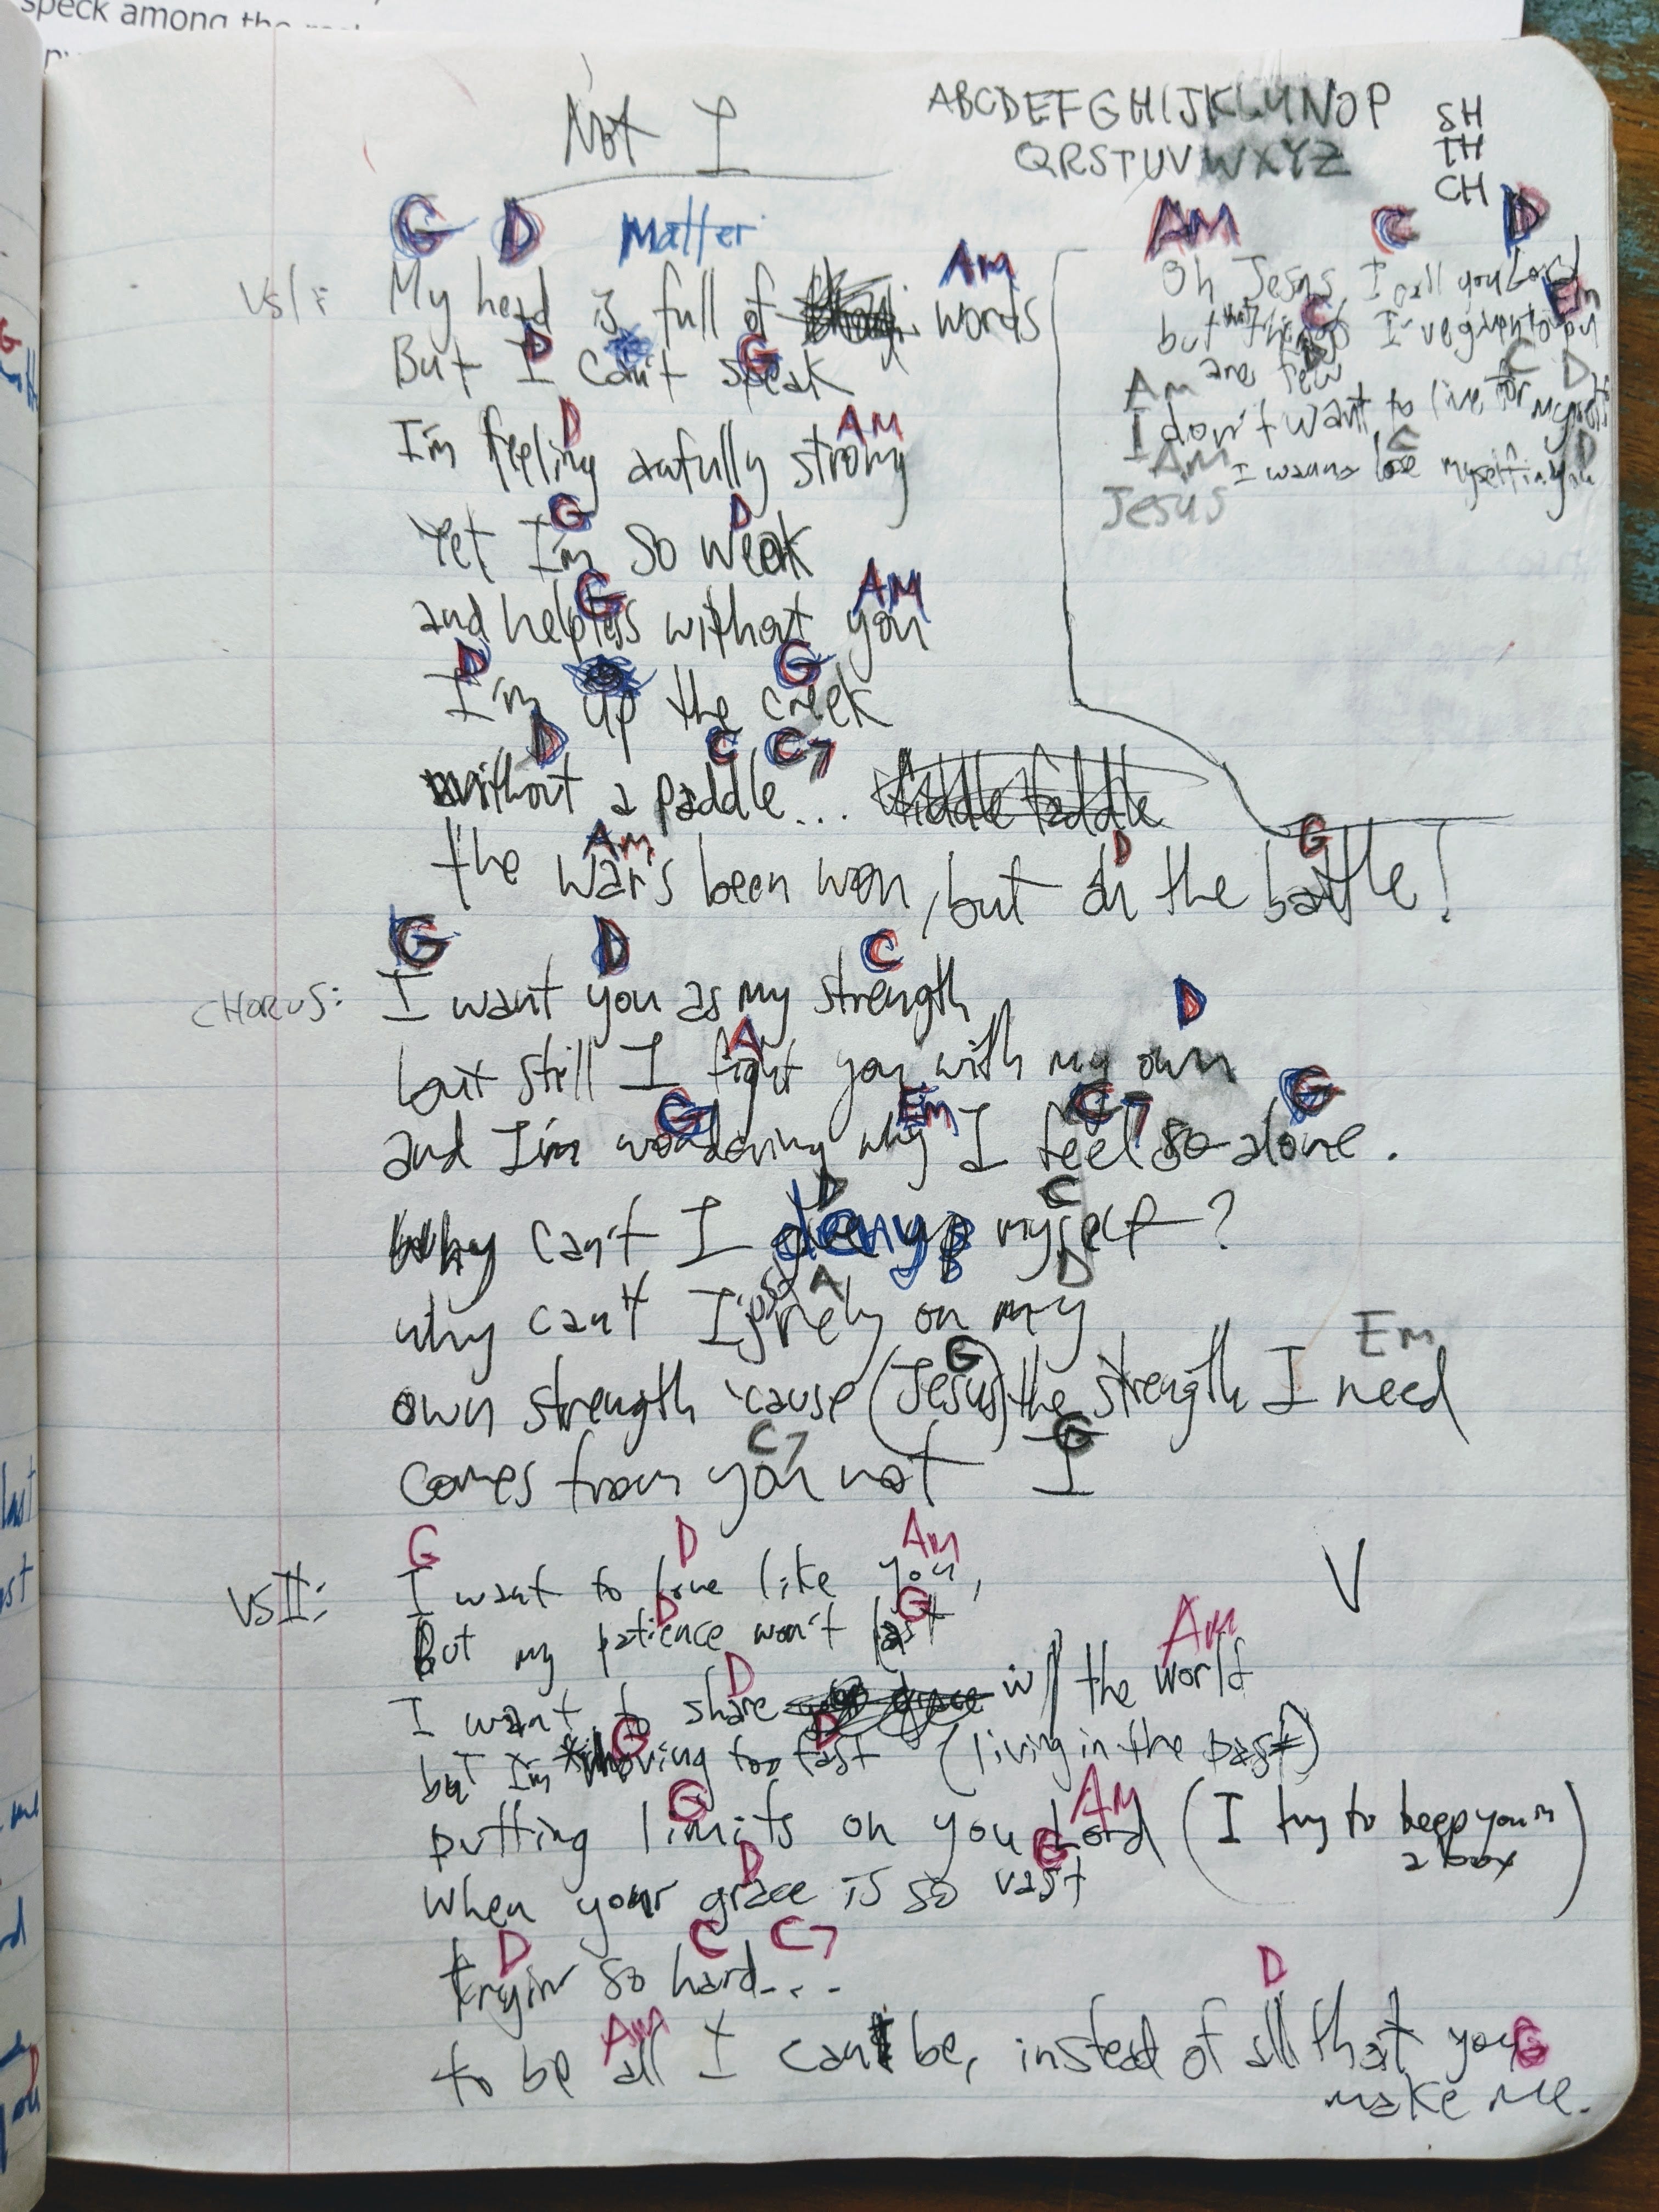 speck among the
Not I
ABCDEFGHIJKLMNOP
QRSTUVWXYZ
SH
TH
CH
G D Matter Am
Vs I: My head is full of words
D G
But I can't speak
D Am
I'm feeling awfully strong
G D
Yet I'm so weak
G Am
and helpless without you
D G
I'm up the creek
D C C7
without a paddle...
Am D G
the war's been won, but oh the battle!
Am C D
Oh Jesus I call you Lord
C Em
but the things I've given to you
D
are few
Am C D
I don't want to live for myself
Am C D
I wanna lose myself in you
Jesus
G D C
CHORUS: I want you as my strength
A D
but still I fight you with my own
G Em C7 G
and I'm wondering why I feel so alone.
D C
why can't I deny myself?
A D
why can't I just rely on my
G Em
own strength 'cause (Jesus) the strength I need
C7 G
comes from you not I
G D Am
VS II: I want to love like you,
D G
But my patience won't last
D Am
I want to share w/ the world
G D
but I'm *moving too fast (living in the past)
G Am
putting limits on you Lord (I try to keep you in
a box)
D G
When your grace is so vast
D C C7
tryin so hard....
Am D G
to be all I can't be, instead of all that you
make me.
V